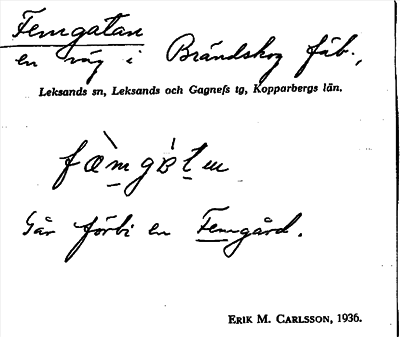 Femgatan
en väg i Brändskog fäb.,
Leksands sn, Leksands och Gagnefs tg, Kopparbergs län.
fæ̀mgàtɐn
Går förbi en Femgård.
ERIK M. CARLSSON, 1936.